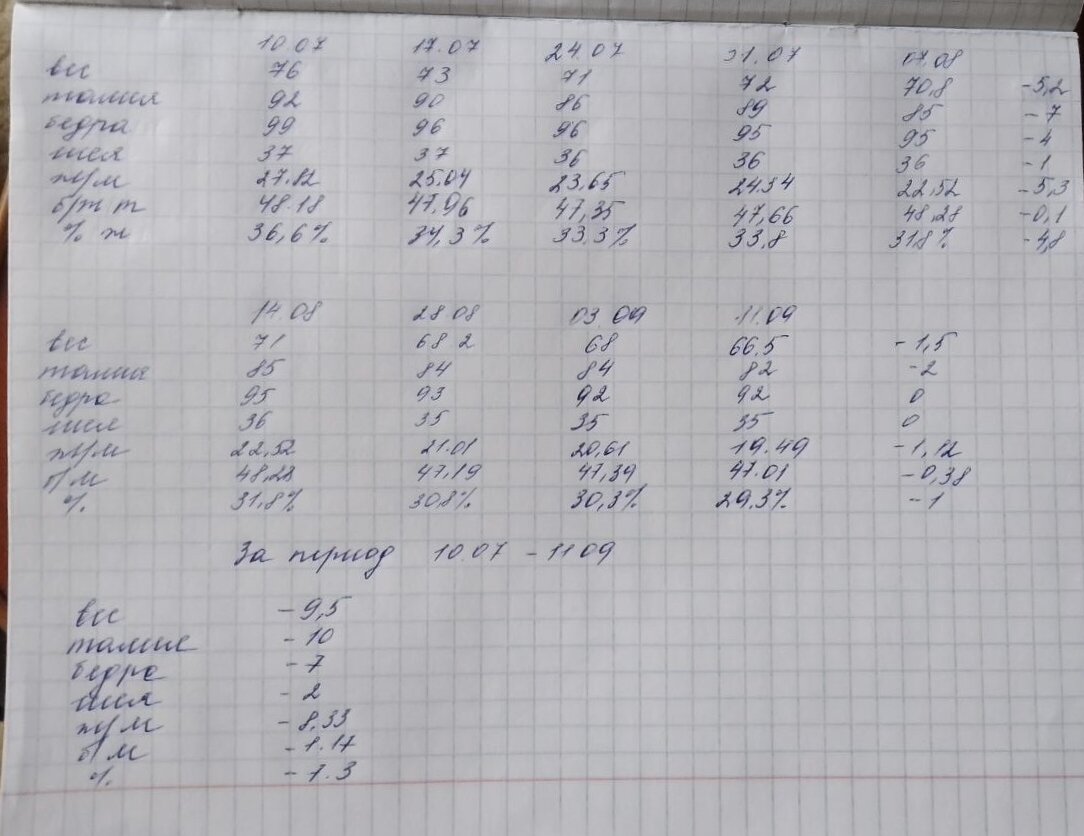 10.07 17.07 24.07 31.07 07.08
вес 76 73 71 72 70,8 -5,2
талия 92 90 86 89 85 -7
бедра 99 96 96 95 95 -4
шея 37 37 36 36 36 -1
ж/м 27.82 25.04 23,65 24.34 22.52 -5,3
б/ж м 48.18 47,96 47,35 47,66 48,28 -0,1
% ж 36,6% 34,3% 33.3% 33,8 31,8% -4,8
14.08 28.08 03.09 11.09
вес 71 68.2 68 66,5 -1,5
талия 85 84 84 82 -2
бедра 95 93 92 92 0
шея 36 35 35 35 0
ж/м 22,52 21.01 20,61 19.49 -1,12
б/м 48,28 47,19 47,39 47.01 -0,38
% 31,8% 30,8% 30,3% 29.3% -1
За период 10.07 - 11 09
вес -9,5
талия -10
бедра -7
шея -2
ж/м -8,33
б/м -1.17
% -7.3